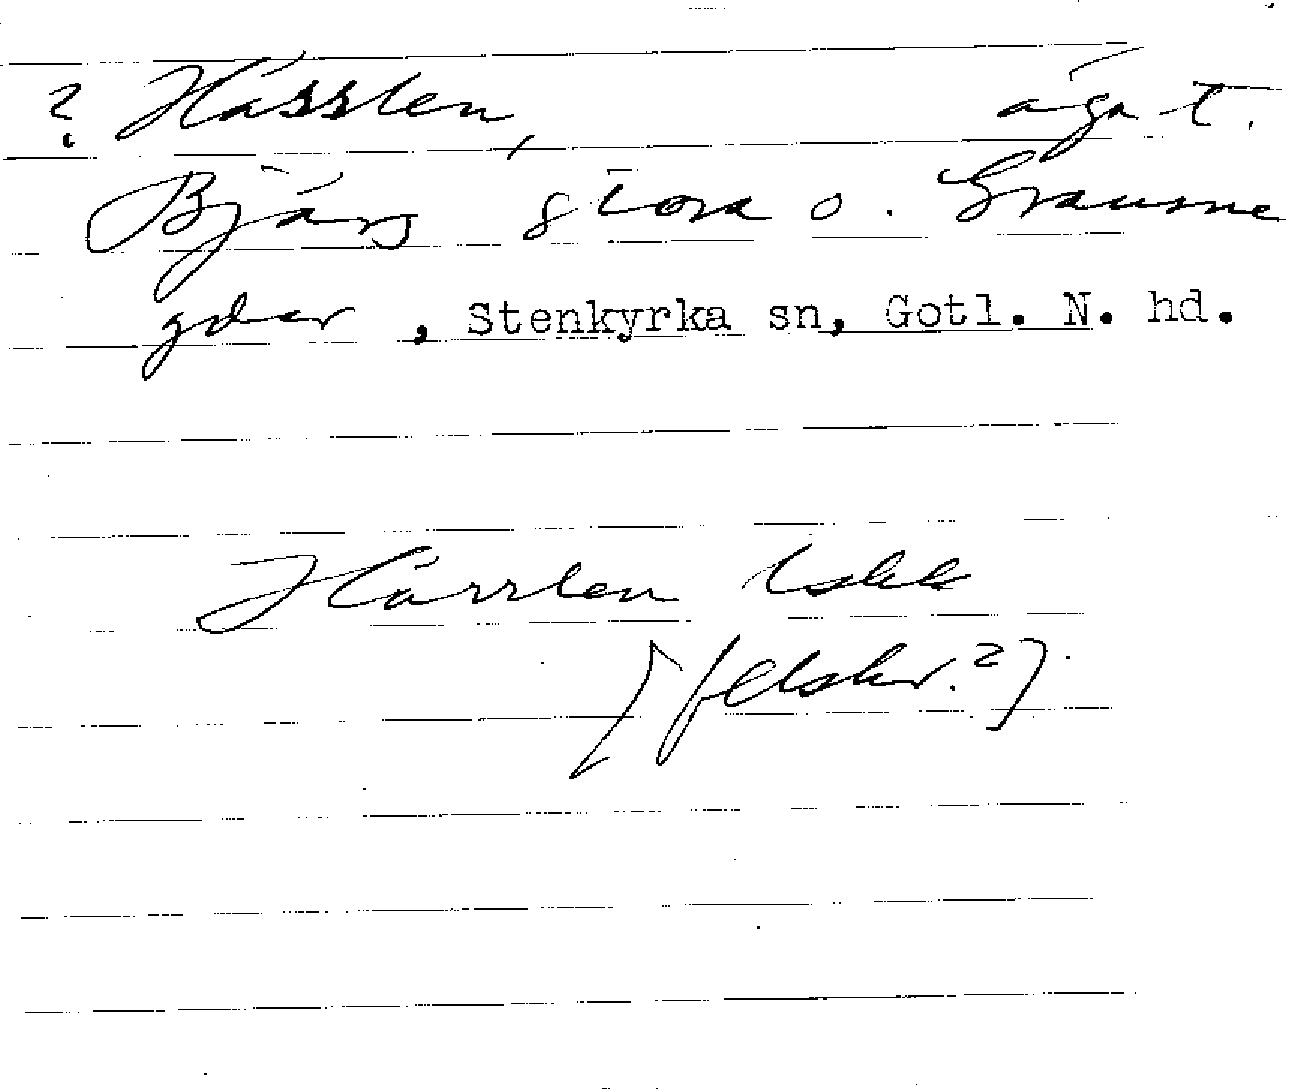 ? Hässlen, äga t.
Bjärs stora o. Grausne
gdar, Stenkyrka sn, Gotl. N. hd.
Hässlen
[felskr.?]